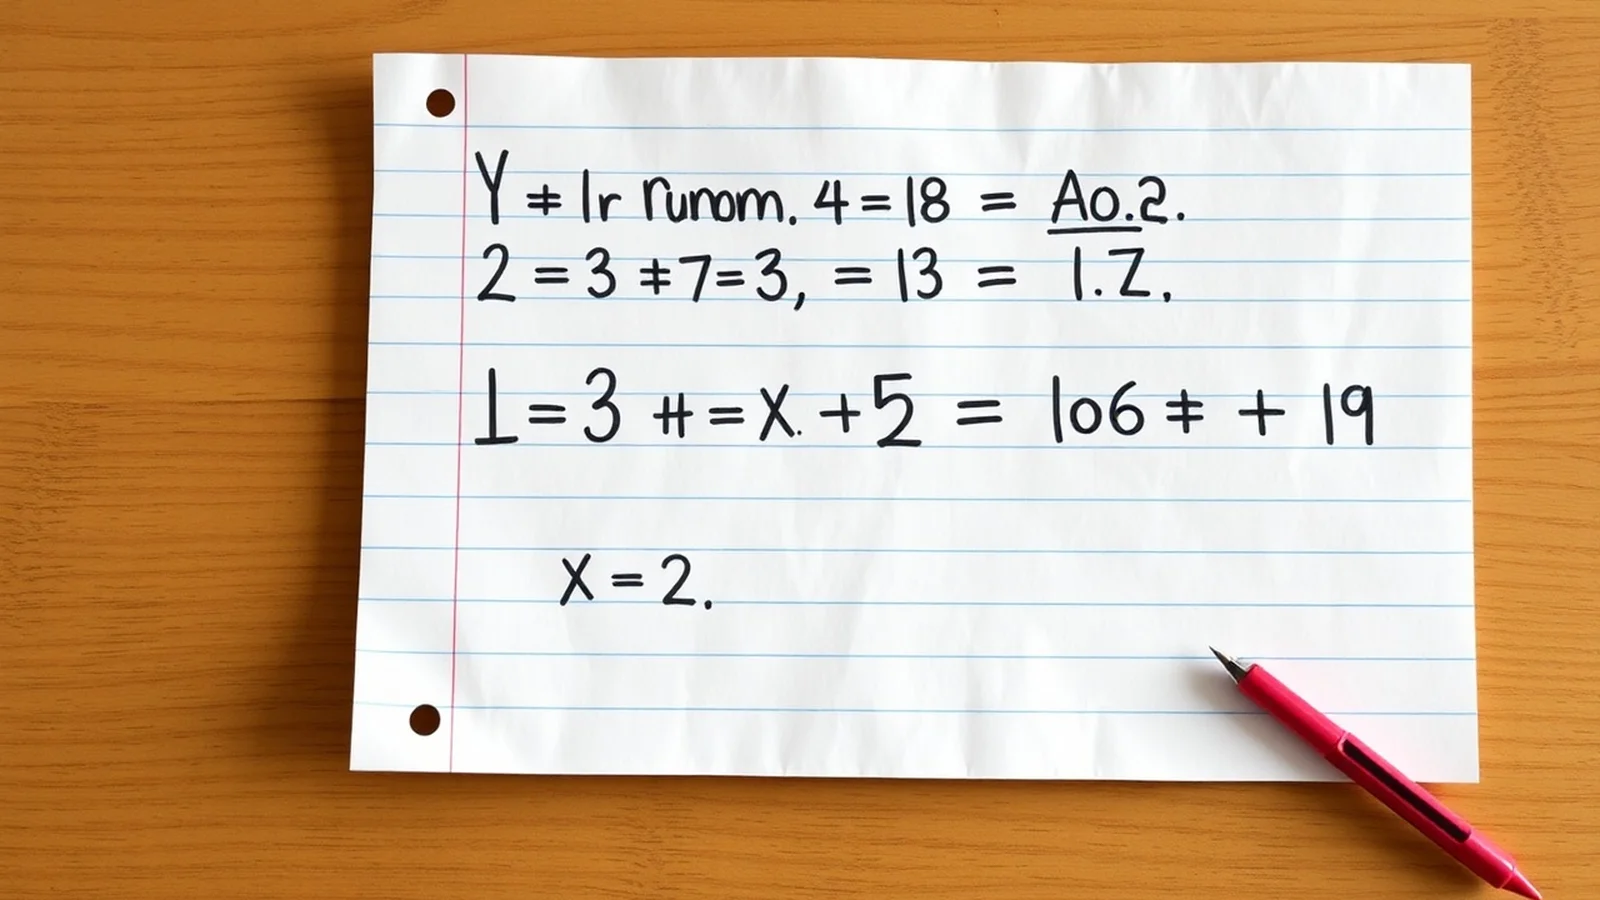 Y ≠ Ir runom. 4 = 18 = Ao.2.
2 = 3 ≠ 7 = 3, = 13 = 1.Z.
1 = 3 # = X. + 5 = 106 ≠ + 19
X = 2.